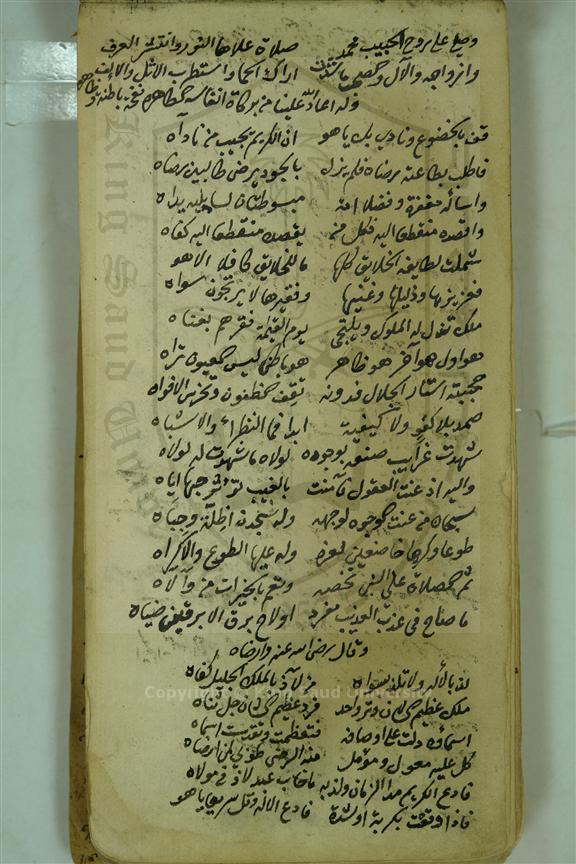 وصلي على روح الحبيب محمد صلاة علاها النور وانتشر العرف
وازواجه والآل والصحب ما شدت اراك الحما واستطرب الاثل والالف
وله اعاد علينا من بركاة انفاسه الطاهرة
قف بالخضوع وناد ربك ياهو ان الكريم يجيب من ناداه
فاطلب بطاعته رضاه فلم يزل بالجود يرضي طالبين رضاه
واساله مغفرة وفضلا انه مبسوطتان لسايليه يداه
واقصده منقطعا اليه فكل من يقصده منقطعا اليه كفاه
شملت لطايفه الخلايق كلها ما للخلايق كافلا الا هو
فعزيزها وذليلها وغنيها وفقيرها لا يرتجون سواه
ملك تدين له الملوك ويلتجي يوم القيامة فقرهم بغناه
هو اول هو آخر هو ظاهر هو باطن ليس العيون تراه
حجبته استار الجلال فدونه تقف الظنون وتخرس الافواه
صمد بلا كفو ولا كيفية ابدا فما النظراء والاشباه
شهدت غرايب صنعه بوجوده لولاه ما شهدت له لولاه
واليه اذعنت العقول فآمنت بالغيب تؤثر حبها اياه
سبحان من عنت الوجوه لوجهه وله سجود اظلة وجباه
طوعا وكرها خاضعين لعزه وله عليها الطوع والاكراه
ثم الصلاة على النبي تخصه وتعم بالخيرات من والاه
ما صاح في عذب العذيب مغرد اولاح برق الابرقين ضياه
وقال رضي الله عنه وارضاه
لذ بالاله ولا تلذ بسواه من لاذ بالملك الجليل كفاه
ملك عظيم الشان وتر واحد فرد عظيم الشان جل ثناه
اسماؤه دلت على اوصافه فتعظمت وتقدست اسماه
كل عليه معول ومؤمل منه الرضى طوبى لمن ارضاه
فادع الكريم مدا الزمان ولذ به ما خاب عبد لاذ في مولاه
فاذا وقعت بكربة اوشدة فادع الاله وقل سريعا ياهو
Copyright © King Saud University
King Saud University